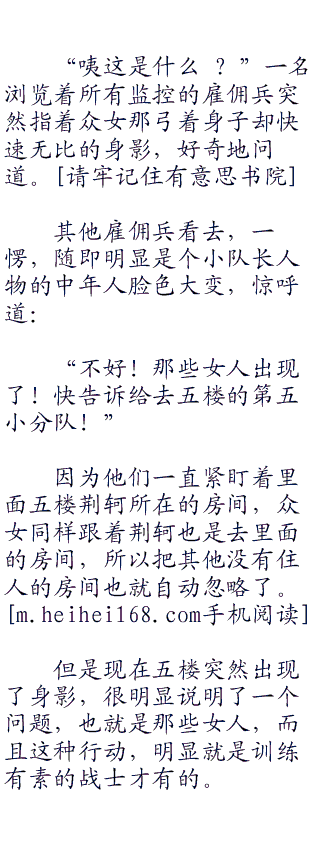 “咦这是什么 ？”一名
浏览着所有监控的雇佣兵突
然指着众女那弓着身子却快
速无比的身影，好奇地问
道。[请牢记住有意思书院]
其他雇佣兵看去，一
愣，随即明显是个小队长人
物的中年人脸色大变，惊呼
道：
“不好！那些女人出现
了！快告诉给去五楼的第五
小分队！”
因为他们一直紧盯着里
面五楼荆轲所在的房间，众
女同样跟着荆轲也是去里面
的房间，所以把其他没有住
人的房间也就自动忽略了。
[m.heihei168.com手机阅读]
但是现在五楼突然出现
了身影，很明显说明了一个
问题，也就是那些女人，而
且这种行动，明显就是训练
有素的战士才有的。